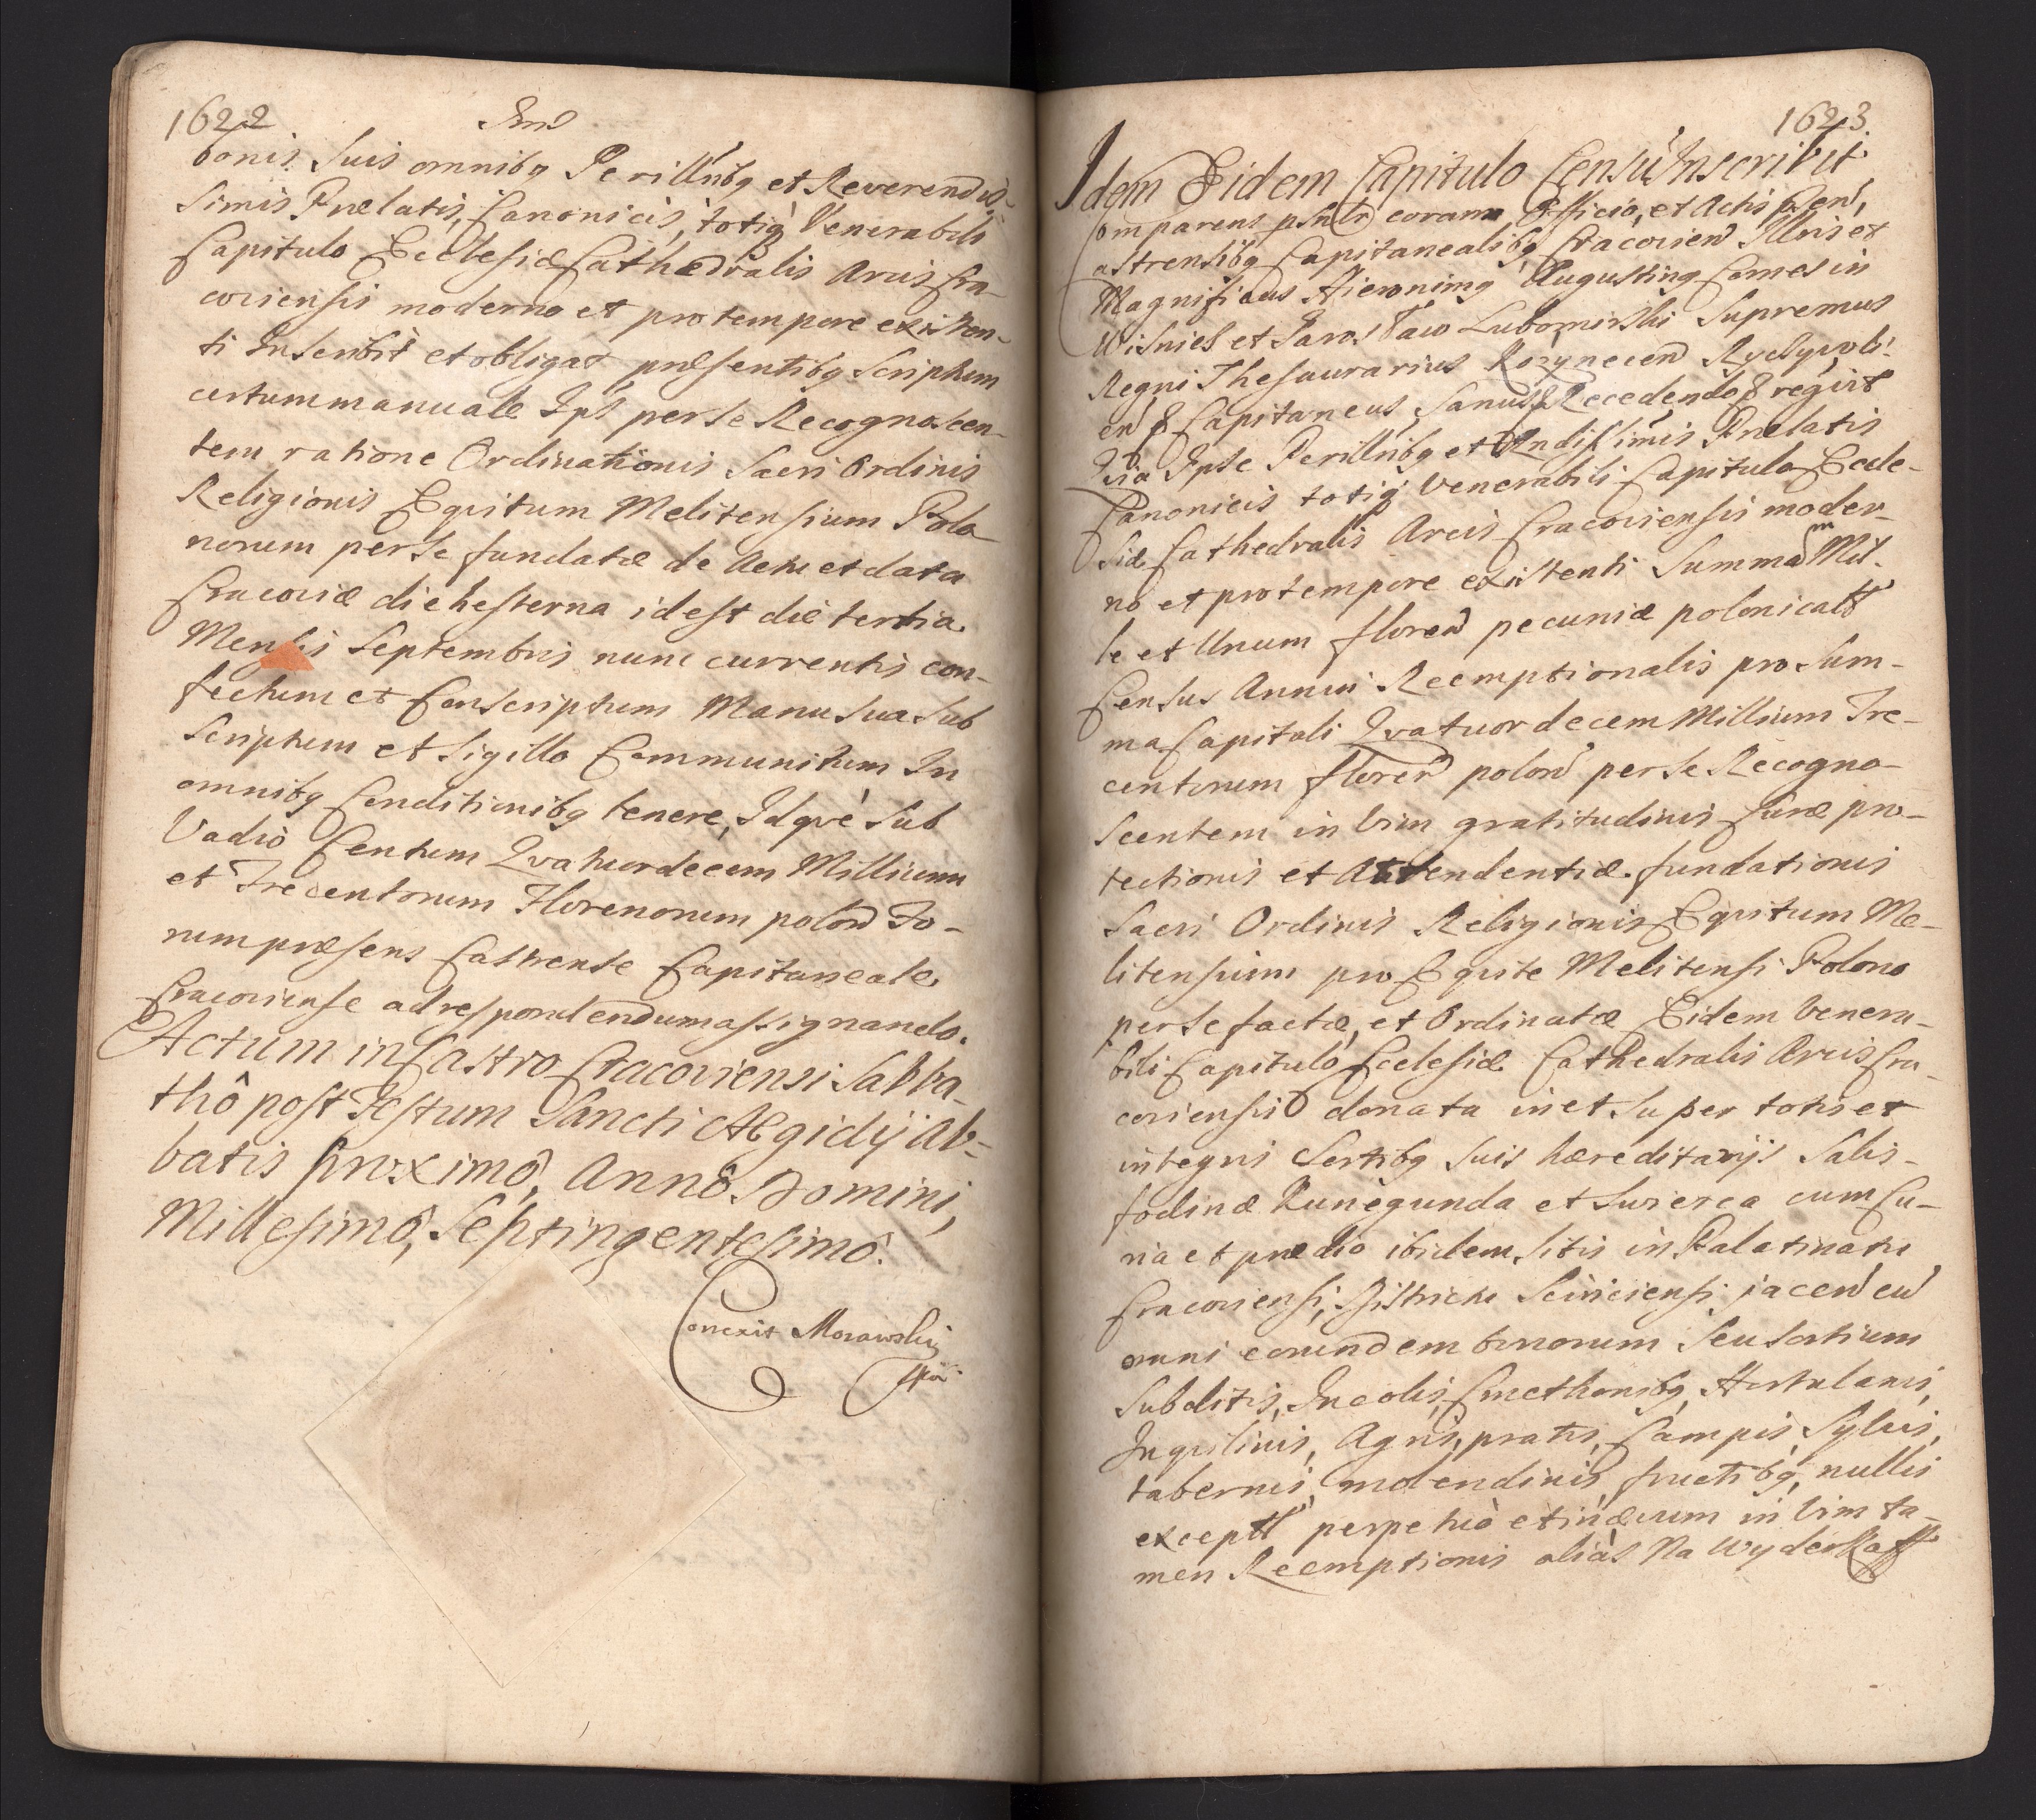 1622
bonis Suis omnibq Perillribq et Reverendis-
Simis Prælatis, Canonicis, totiq Venerabili
Capitulo Ecclesiæ Cathedralis Arcis Cra-
coviensis moderno et pro tempore existen-
ti Inscribit et obligat, præsentibq Scriptum
certum manuale Ips per se Recognoscen-
tem ratione Ordinationis Sacri Ordinis
Religionis Eqvitum Melitensium Polo-
norum per se fundatæ de Actu et data
Cracoviæ die hesterna id est die tertia
Mensis Septembris nunc currentis con-
fectum et Conscriptum Manu sua sub
Scriptum et Sigillo Communitum In
omnibq Conditionibq tenere, Idqvè sub
Vadio Centum Qvatuordecem Millium
et Trecentorum Florenorum polon Fo-
rum præsens Castrense Capitaneale
Cracoviense ad respondendum assignando.
Actum in Castro Cracoviensi Sabba-
thô post Festum Sancti Ægidÿ Ab-
batis proximô, Annô Domini,
Millesimô, Septingentesimô.
Correxit Morawski
mpa
1623
Idem Eidem Capitulo Censũ Inscribit
Comparens psnltr coram Officio, et Actis pren,
Castrensibq Capitanealibq Cracovien Illris et
Magnificus Hieronimq Augustinq Comes in
Wisnicz et Jarosław Lubomirski Supremus
Regni Thesaurarius Rozynecen Ryczyvoli-
en & Capitaneus, Sanus & Recedendo & regint
Qvia Ipse Perillribq et Rndissimis Prælatis
Canonicis totiq Venerabili Capitulo Eccle-
siæ Cathedralis Arcis Cracoviensis moder-
no et pro tempore existenti Summam Mil-
le et Unum floren pecuniæ polonicall
Census Annui Reemptionalis pro Sum-
ma Capitali Qvatuordecem Millium Tre-
centorum floren polon per se Recogno-
scentem in vim gratitudinis Curæ pro-
tectionis et Attendentiæ fundationis
Sacri Ordinis Religionis Eqvitum Me-
litensium pro Eqvite Melitensi Polono
per se factæ, et Ordinatæ Eidem Venera-
bili Capitulo Ecclesiæ Cathedralis Arcis Cra-
coviensis donata in et super totis et
integris Sortibq suis hæreditarijs Salis-
fodinæ Kunegunda et Swierca cum Cu-
ria et prædio ibidem sitis in Palatinatu
Cracoviensi, Districtu Scirciensi jacen cu
omni eorundem bonorum seu sortium
Subditis, Incolis, Cmethonibq, Hortulanis,
Inqvilinis, Agris, pratis, Campis, Sylvis,
tabernis, molendinis, fructibq, nullis
exceptll perpetuò et in ævum in vim ta-
men Reemptionis aliàs Na Wyderkaff